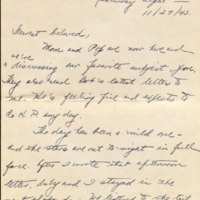 Saturday night —
11/27/43.
Dearest beloved,
Mom and Pop are now here and
we're
discussing our favorite subject, you.
They also read Bob's latest letter to
me. He's feeling fine and expects to
do K.P. any day.
The day has been a mild one -
and the stars are out to-night in full
face. After I wrote that afternoon
letter, baby and I stayed in the